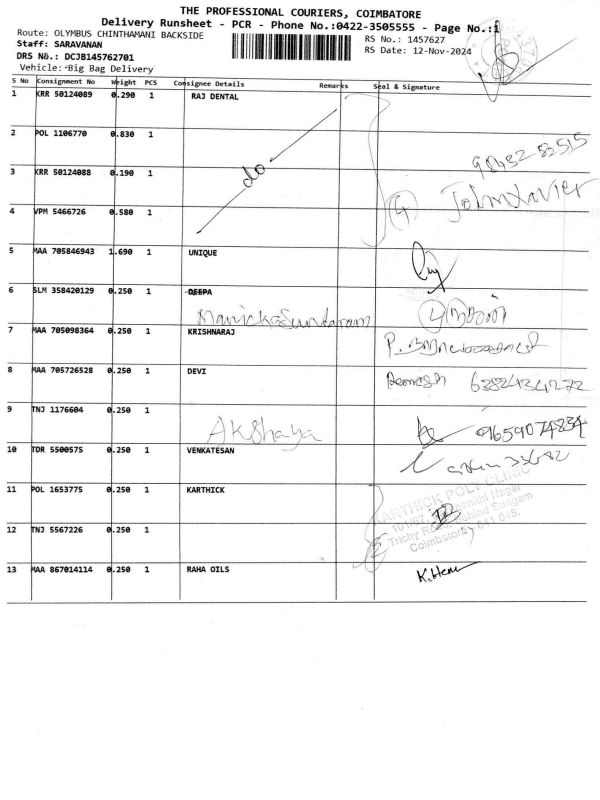 THE PROFESSIONAL COURIERS, COIMBATORE
Delivery Runsheet - PCR - Phone No.:0422-3505555 - Page No.:1
Route: OLYMBUS CHINTHAMANI BACKSIDE
RS No.: 1457627
Staff: SARAVANAN
RS Date: 12-Nov-2024
DRS No.: DCJB145762701
Vehicle: Big Bag Delivery
S No Consignment No Weight PCS Consignee Details Remarks Seal & Signature
1 KRR 50124089 0.290 1 RAJ DENTAL
2 POL 1106770 0.830 1
98432 83515
3 KRR 50124088 0.190 1
do
John Xavier
4 VPM 5466726 0.580 1
5 MAA 705846943 1.690 1 UNIQUE
6 SLM 358420129 0.250 1 DEEPA
Manickasundaram
7 MAA 705098364 0.250 1 KRISHNARAJ
8 MAA 705726528 0.250 1 DEVI
9 TNJ 1176604 0.250 1
Akshaya
9659074834
10 TDR 5500575 0.250 1 VENKATESAN
33682
11 POL 1653775 0.250 1 KARTHICK
KARTHICK POLY CLINIC
Trichy Road, Behind Sungam
Coimbatore - 641 045.
12 TNJ 5567226 0.250 1
13 MAA 867014114 0.250 1 RAHA OILS
K.Hem